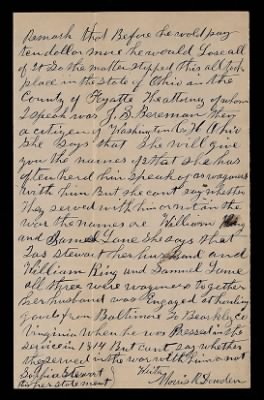 Remark that Before he would pay
ten dollar more he would Lose all
of it So the matter stopped this all took
place in the State of Ohio in the
County of Fayatte The attorney of whom
I speak was J. S. Bereman then
a citizen of Washington C. H. Ohio
She Says that She will give
you the names of that She has
often herd him Speak of as wagoners
with him But she cant say whether
they served with him or not in the
war the names are William King
and Samel Lane She says that
Jas Stewart her husband and
William King and Samuel Lane
all three were wagoners together
her husband was Engaged at hauling
goods from Baltimore To Beardley Co
Virginia When he was Pressed in the
service in 1814 But cant say whether
they served in the war with him or not
Sophia Stewart
as per statement
Writing
Morris R Dowden